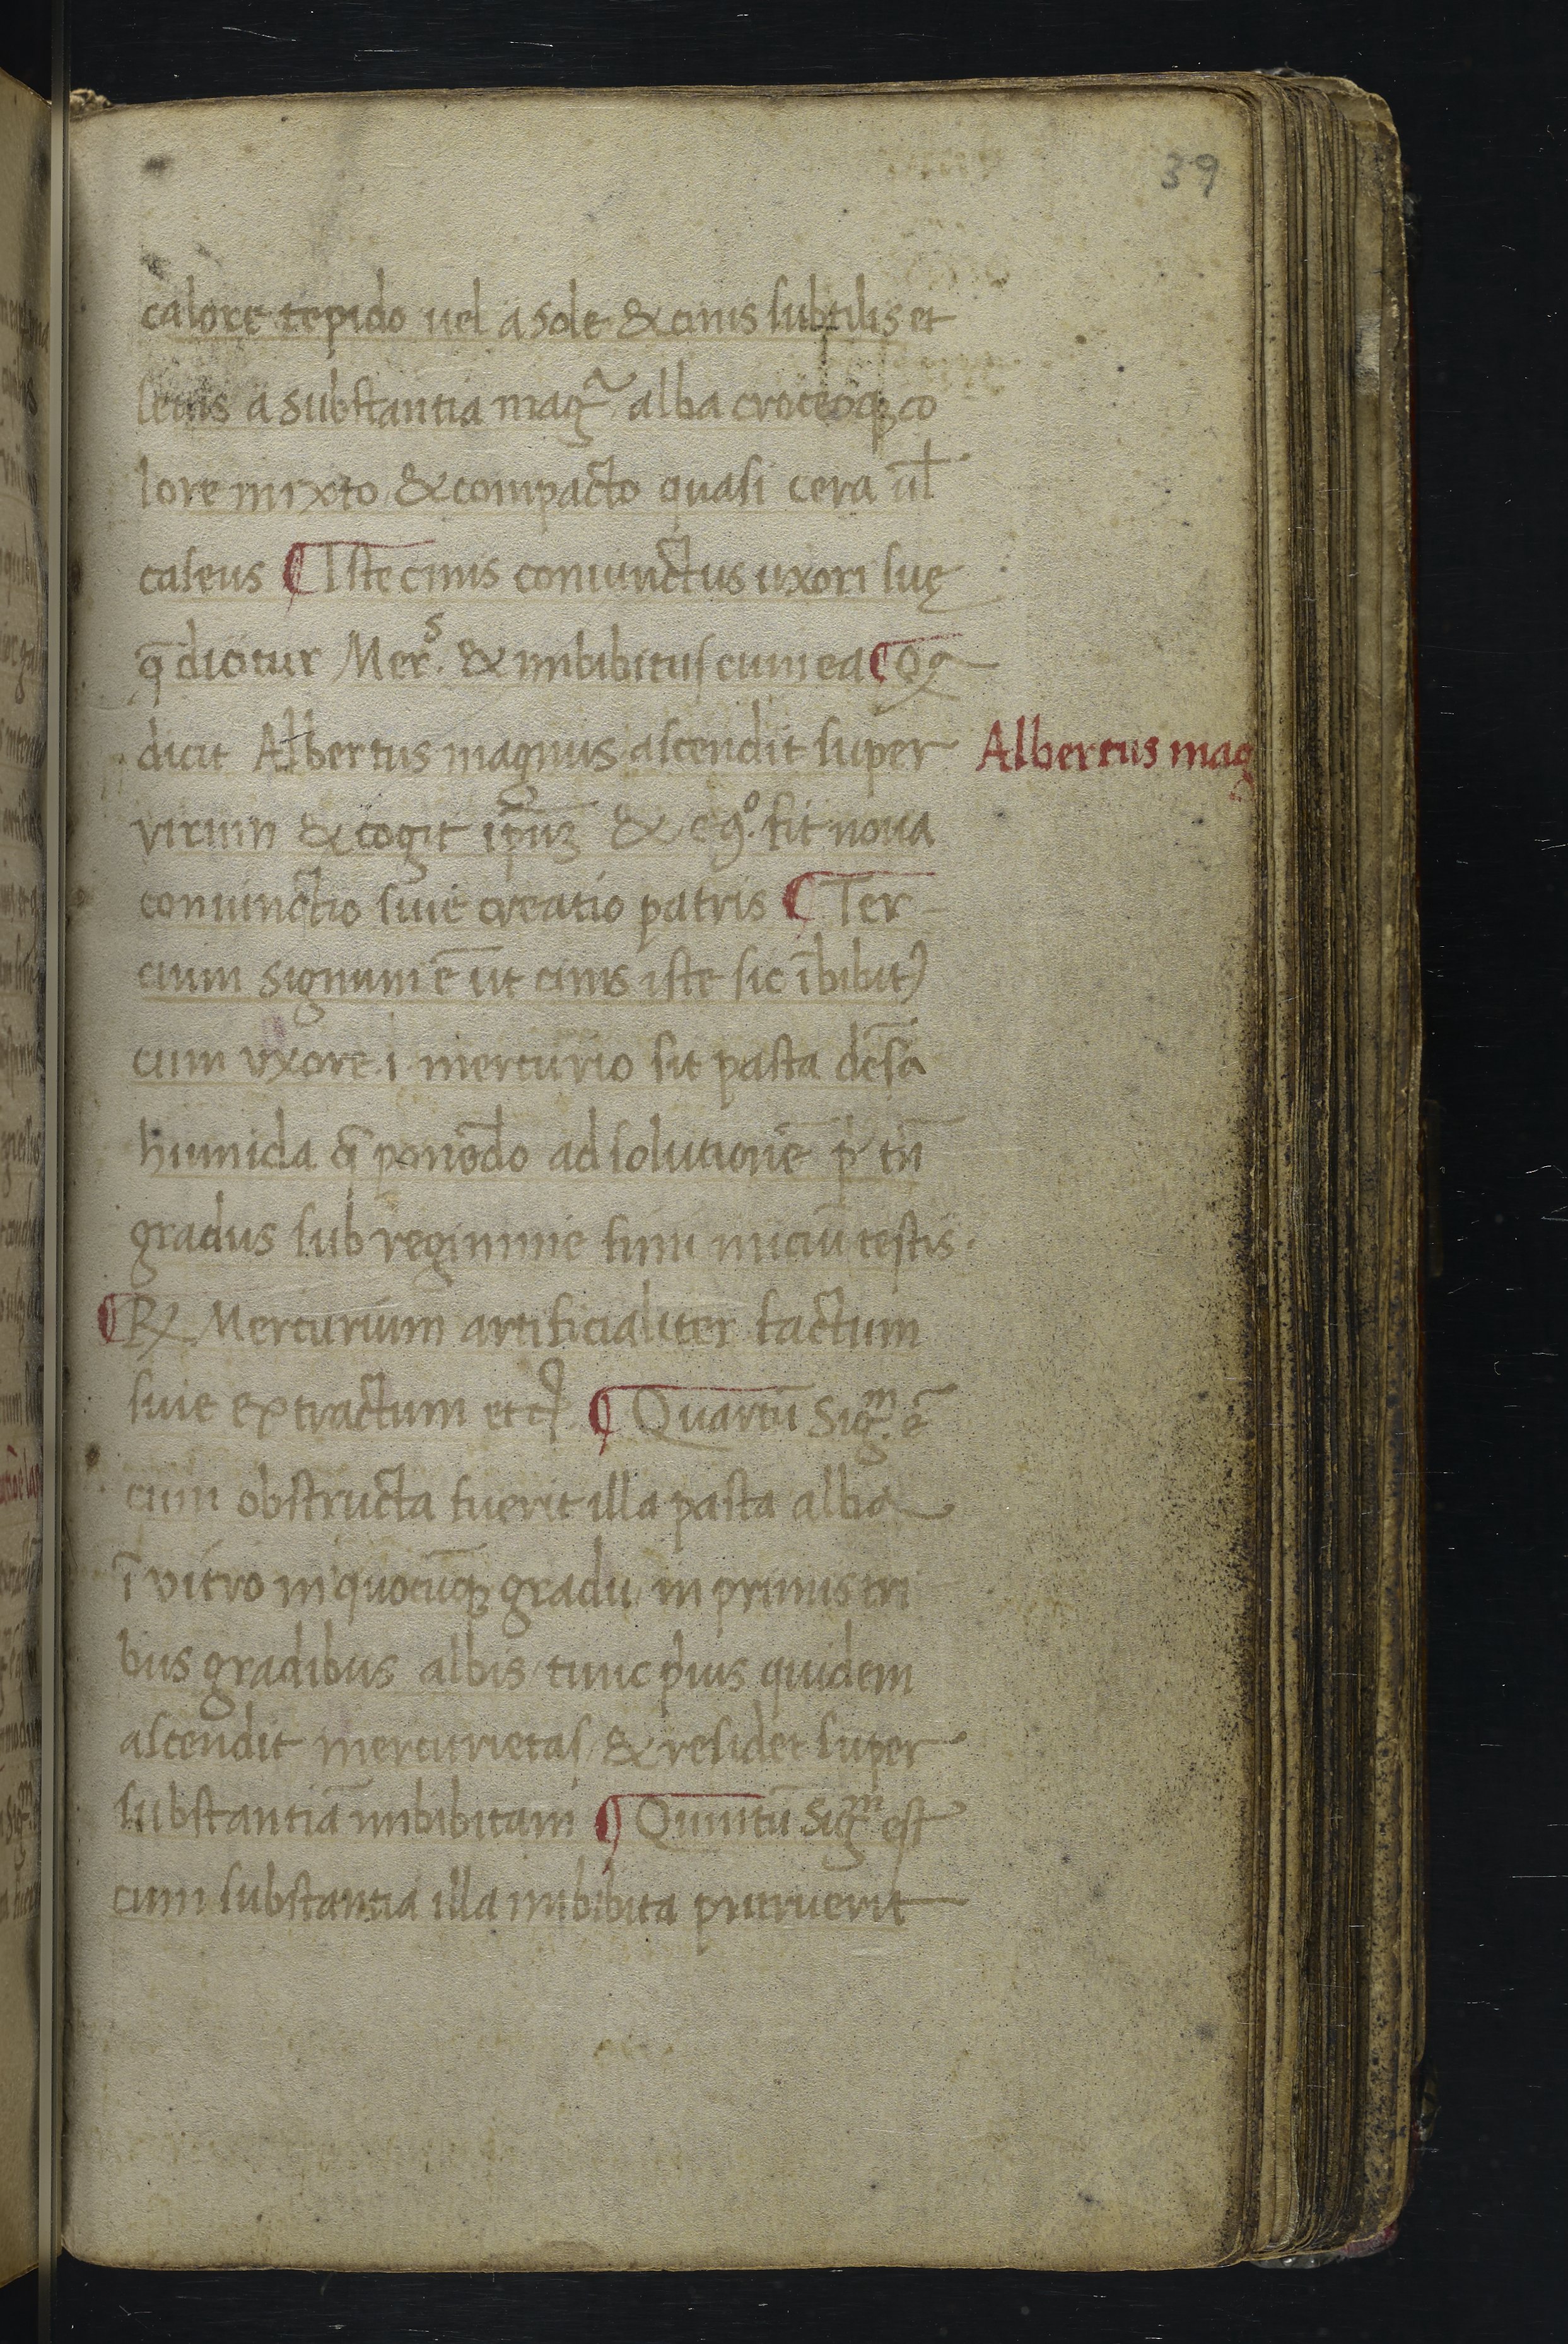 39
calore tepido uel a sole & cinis subtilis et
leuis a substantia mag̃ alba croceoqꝫ co
lore mixto & compacto quasi cera ul̄
caseus ¶ Iste cinis coniunctus uxori suę
q̄ dicitur Merˢ. & imbibitus cum ea ¶
dicit Albertus magnus ascendit super
Albertus mag
virum & cogit ip̄uꝫ & eqº. fit noua
coniunctio siue creatio patris ¶ Ter-
cium signum ē ut cinis iste sic ībibit᷑
cum vxore .i. mercurio sit pasta dēsa
humida q̄ ponēdo ad solutionē p tn̄
gradus sub regimine fimi miciū testis.
¶ ℞ Mercurium artificialiter factum
siue extractum etcꝭ. ¶ Quartū Sigᵐ. ē
cum obstructa fuerit illa pasta alba
ī vitro in quocūqꝫ gradu in primis tri
bus gradibus albis tunc pius quidem
ascendit mercurietas & residet super
substantiā imbibitam ¶ Quintū Sigᵐ est
cum substantia illa imbibita putruerit